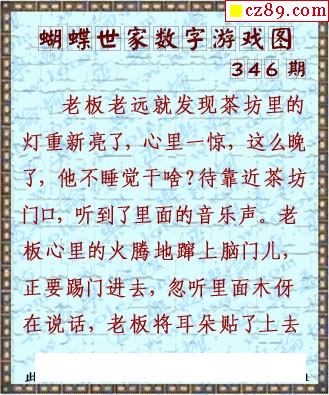 cz89.com
蝴蝶世家数字游戏图
346 期
老板老远就发现茶坊里的
灯重新亮了，心里一惊，这么晚
了，他不睡觉干啥？待靠近茶坊
门口，听到了里面的音乐声。老
板心里的火腾地蹿上脑门儿，
正要踢门进去，忽听里面木伢
在说话，老板将耳朵贴了上去